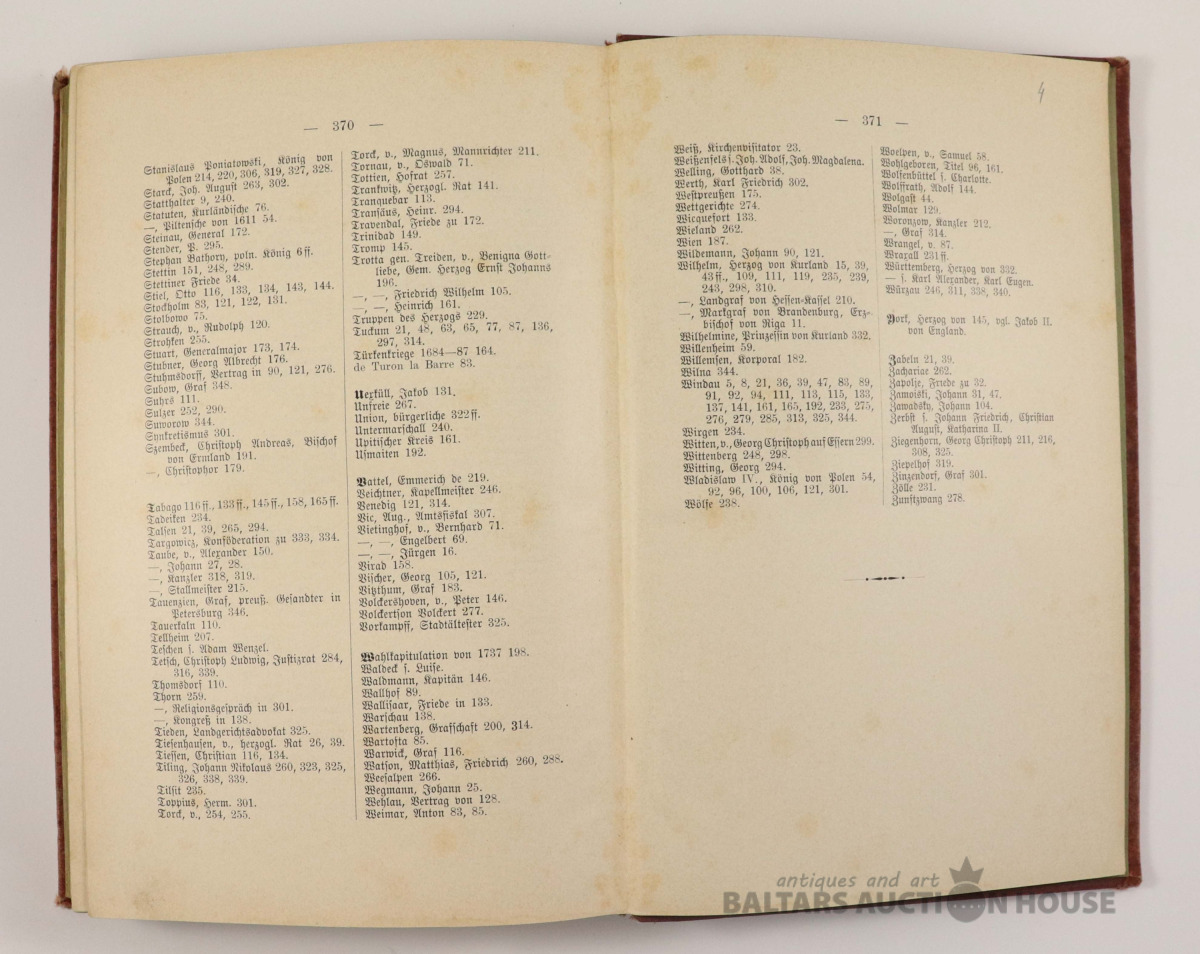 — 370 —
Stanislaus Poniatowski, König von
Polen 214, 220, 306, 319, 327, 328.
Starck, Joh. August 263, 302.
Statthalter 9, 240.
Statuten, Kurländische 76.
—, Piltensche von 1611 54.
Steinau, General 172.
Stender, P. 295.
Stephan Bathory, poln. König 6 ff.
Stettin 151, 248, 289.
Stettiner Friede 34.
Stiel, Otto 116, 133, 134, 143, 144.
Stockholm 83, 121, 122, 131.
Stolbowo 75.
Strauch, v., Rudolph 120.
Strohken 255.
Stuart, Generalmajor 173, 174.
Stubner, Georg Albrecht 176.
Stuhmsdorff, Vertrag in 90, 121, 276.
Subow, Graf 348.
Suhrs 111.
Sulzer 252, 290.
Suworow 344.
Synkretismus 301.
Szembeck, Christoph Andreas, Bischof
von Ermland 191.
—, Christophor 179.
Tabago 116 ff., 133 ff., 145 ff., 158, 165 ff.
Tadeiken 234.
Talsen 21, 39, 265, 294.
Targowicz, Konföderation zu 333, 334.
Taube, v., Alexander 150.
—, Johann 27, 28.
—, Kanzler 318, 319.
—, Stallmeister 215.
Tauenzien, Graf, preuß. Gesandter in
Petersburg 346.
Tauerkaln 110.
Tellheim 207.
Teschen s. Adam Wenzel.
Tetsch, Christoph Ludwig, Justizrat 284,
316, 339.
Thomsdorf 110.
Thorn 259.
—, Religionsgespräch in 301.
—, Kongreß in 138.
Tieden, Landgerichtsadvokat 325.
Tiesenhausen, v., herzogl. Rat 26, 39.
Tiessen, Christian 116, 134.
Tiling, Johann Nikolaus 260, 323, 325,
326, 338, 339.
Tilsit 235.
Toppius, Herm. 301.
Torck, v., 254, 255.
Torck, v., Magnus, Mannrichter 211.
Tornau, v., Oswald 71.
Tottien, Hofrat 257.
Trankwitz, Herzogl. Rat 141.
Tranquebar 113.
Transäus, Heinr. 294.
Travendal, Friede zu 172.
Trinidad 149.
Tromp 145.
Trotta gen. Treiden, v., Benigna Gott-
liebe, Gem. Herzog Ernst Johanns
196.
—, —, Friedrich Wilhelm 105.
—, —, Heinrich 161.
Truppen des Herzogs 229.
Tuckum 21, 48, 63, 65, 77, 87, 136,
297, 314.
Türkenkriege 1684—87 164.
de Turon la Barre 83.
Uexküll, Jakob 131.
Unfreie 267.
Union, bürgerliche 322 ff.
Untermarschall 240.
Upitischer Kreis 161.
Usmaiten 192.
Vattel, Emmerich de 219.
Veichtner, Kapellmeister 246.
Venedig 121, 314.
Vic, Aug., Amtsfiskal 307.
Vietinghof, v., Bernhard 71.
—, —, Engelbert 69.
—, —, Jürgen 16.
Virad 158.
Vischer, Georg 105, 121.
Vitzthum, Graf 183.
Volckershoven, v., Peter 146.
Volckertson Volckert 277.
Vorkampff, Stadtältester 325.
Wahlkapitulation von 1737 198.
Waldeck s. Luise.
Waldmann, Kapitän 146.
Wallhof 89.
Wallisaar, Friede in 133.
Warschau 138.
Wartenberg, Grafschaft 200, 314.
Wartosta 85.
Warwick, Graf 116.
Watson, Matthias, Friedrich 260, 288.
Weesalpen 266.
Wegmann, Johann 25.
Wehlau, Vertrag von 128.
Weimar, Anton 83, 85.
4
— 371 —
Weiß, Kirchenvisitator 23.
Weißenfels s. Joh. Adolf, Joh. Magdalena.
Welling, Gotthard 38.
Werth, Karl Friedrich 302.
Westpreußen 175.
Wettgerichte 274.
Wicquefort 133.
Wieland 262.
Wien 187.
Wildemann, Johann 90, 121.
Wilhelm, Herzog von Kurland 15, 39,
43 ff., 109, 111, 119, 235, 239,
243, 298, 310.
—, Landgraf von Hessen-Kassel 210.
—, Markgraf von Brandenburg, Erz-
bischof von Riga 11.
Wilhelmine, Prinzessin von Kurland 332.
Willenheim 59.
Willemsen, Korporal 182.
Wilna 344.
Windau 5, 8, 21, 36, 39, 47, 83, 89,
91, 92, 94, 111, 113, 115, 133,
137, 141, 161, 165, 192, 233, 275,
276, 279, 285, 313, 325, 344.
Wirgen 234.
Witten, v., Georg Christoph auf Essern 299.
Wittenberg 248, 298.
Witting, Georg 294.
Wladislaw IV., König von Polen 54,
92, 96, 100, 106, 121, 301.
Wölfe 238.
Woelpen, v., Samuel 58.
Wohlgeboren, Titel 96, 161.
Wolfenbüttel s. Charlotte.
Wolffrath, Adolf 144.
Wolgast 44.
Wolmar 129.
Woronzow, Kanzler 212.
—, Graf 314.
Wrangel, v. 87.
Wraxall 231 ff.
Württemberg, Herzog von 332.
— s. Karl Alexander, Karl Eugen.
Würzau 246, 311, 338, 340.
York, Herzog von 145, vgl. Jakob II.
von England.
Zabeln 21, 39.
Zachariae 262.
Zapolje, Friede zu 32.
Zamoiski, Johann 31, 47.
Zawadsky, Johann 104.
Zerbst s. Johann Friedrich, Christian
August, Katharina II.
Ziegenhorn, Georg Christoph 211, 216,
308, 325.
Ziepelhof 319.
Zinzendorf, Graf 301.
Zölle 231.
Zunftzwang 278.
antiques and art
BALTARS AUCTION HOUSE